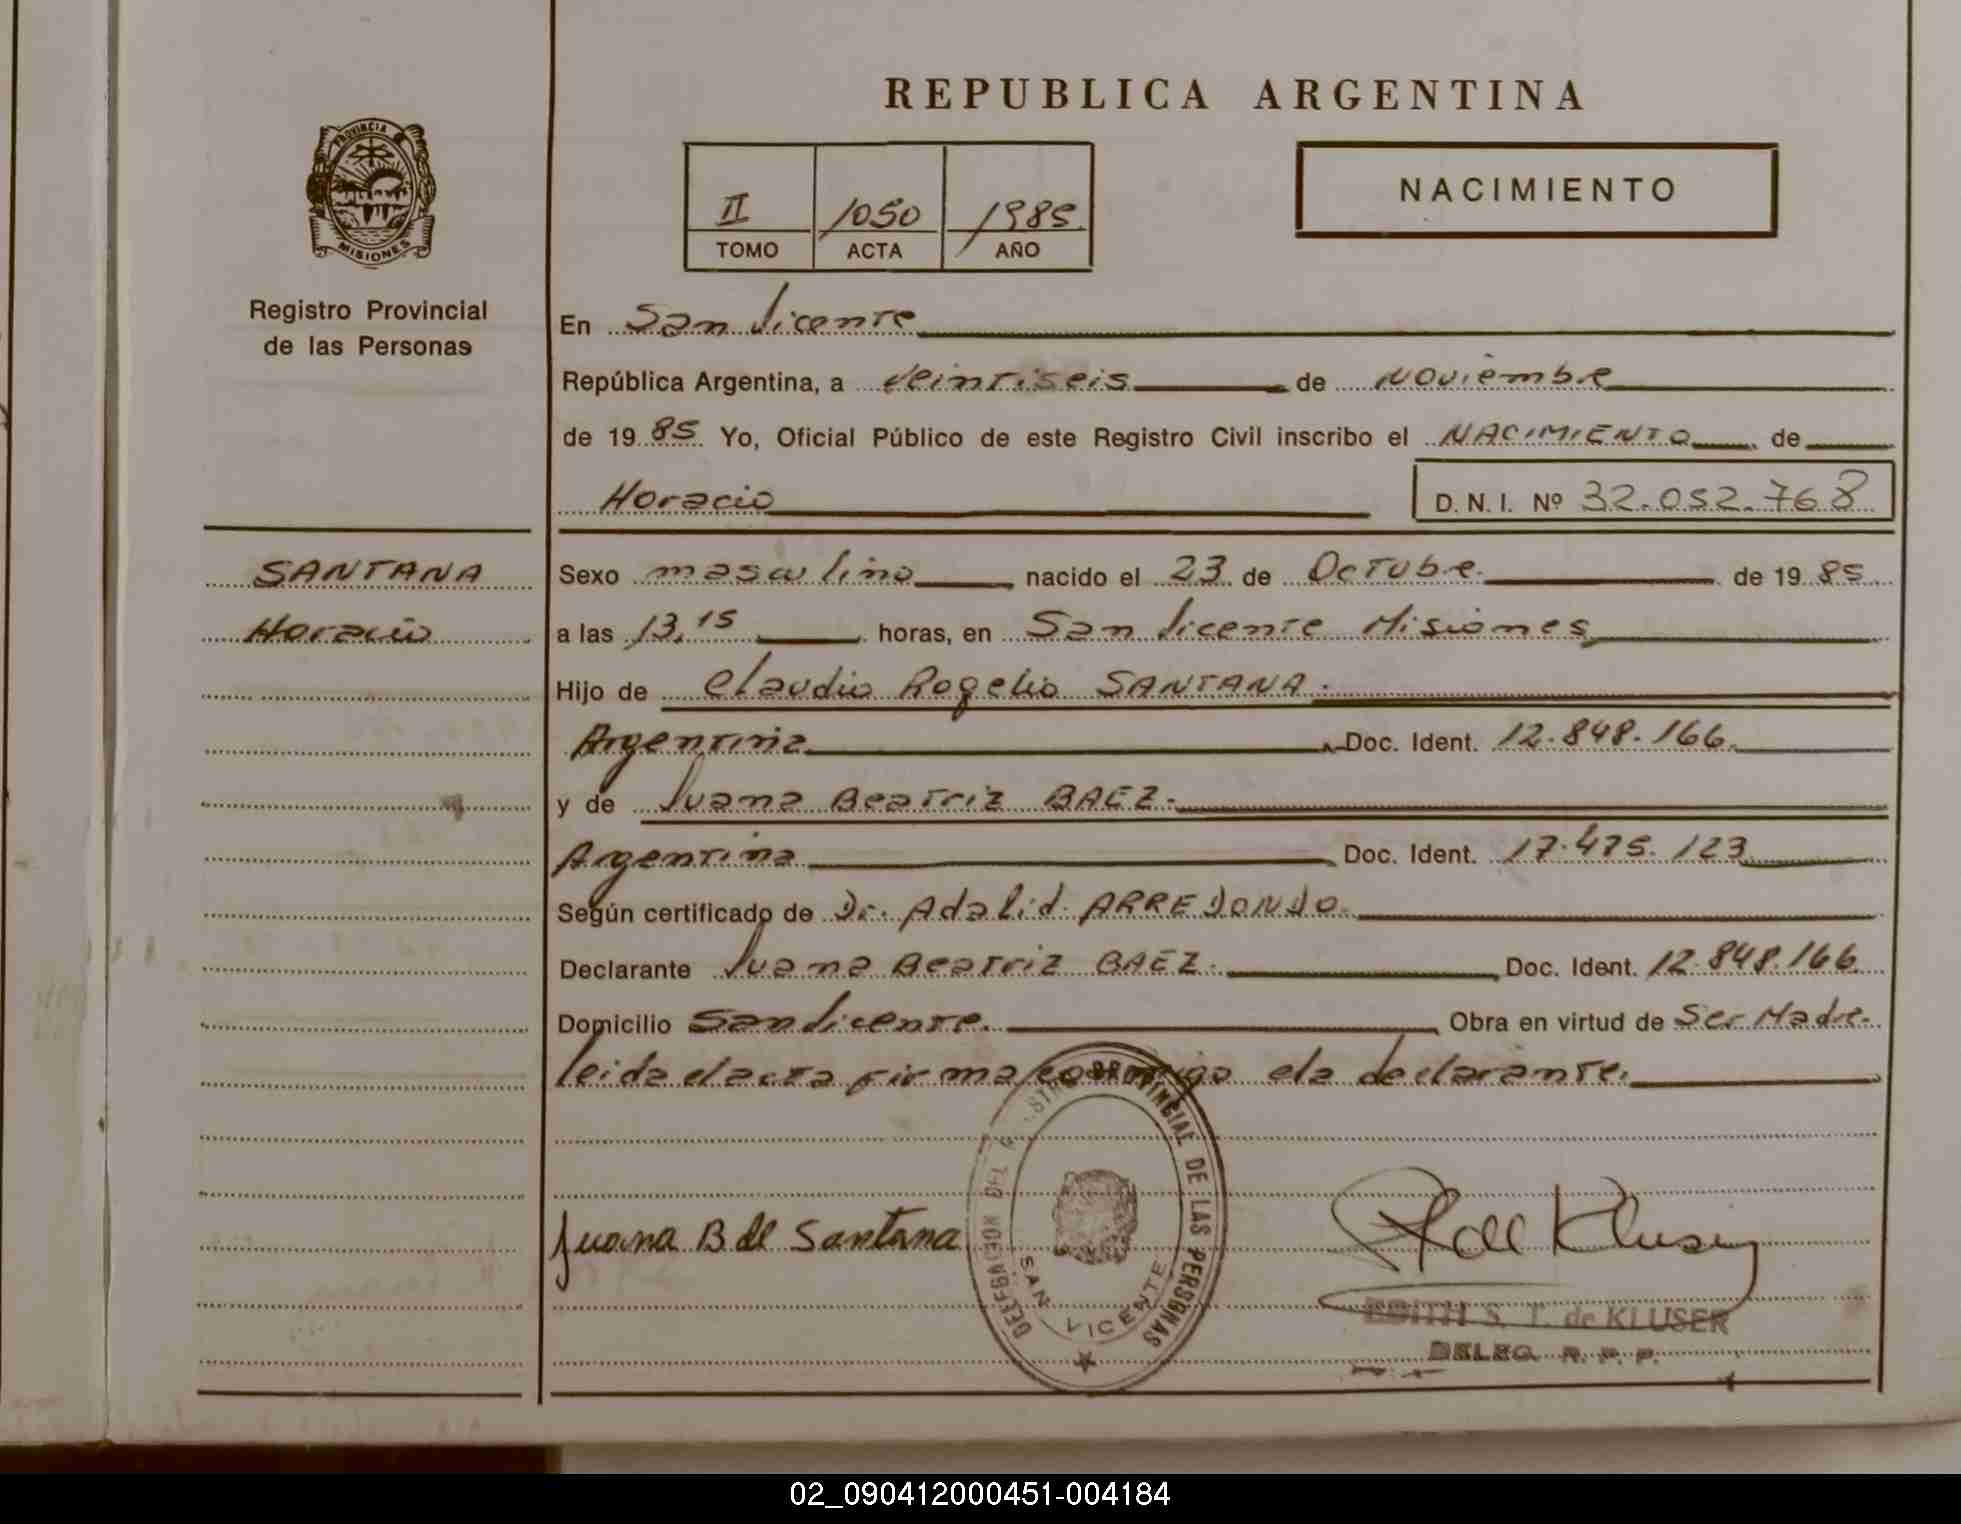 REPUBLICA ARGENTINA
PROVINCIA
MISIONES
Registro Provincial
de las Personas
NACIMIENTO
II 1050 1985
TOMO ACTA AÑO
En San Vicente
República Argentina, a Veintiseis de Noviembre
de 1985 Yo, Oficial Público de este Registro Civil inscribo el NACIMIENTO de
Horacio D. N. I. Nº 32.052.768
SANTANA
Horacio
Sexo masculino nacido el 23 de Octubre de 1985
a las 13,15 horas, en San Vicente Misiones
Hijo de Claudio Rogelio SANTANA.
Argentina Doc. Ident. 12.848.166
y de Juana Beatriz BAEZ.
Argentina Doc. Ident. 17.475.123
Según certificado de Dr. Adalid ARREDONDO.
Declarante Juana Beatriz BAEZ. Doc. Ident. 12.848.166
Domicilio San Vicente. Obra en virtud de Ser Madre.
leida el acta firma conmigo el declarante.
Juana B de Santana
DELEGACION DEL PROVINCIAL DE LAS PERSONAS
SAN VICENTE
de Kluser
EDITH S. T. de KLUSER
DELEG. R. P. P.
02_090412000451-004184